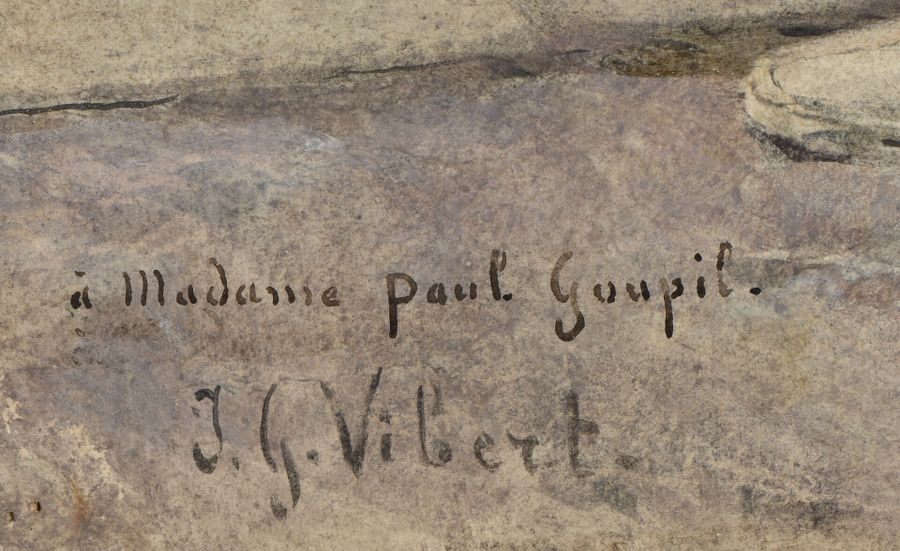 à Madame Paul Goupil.
J. G. Vibert.